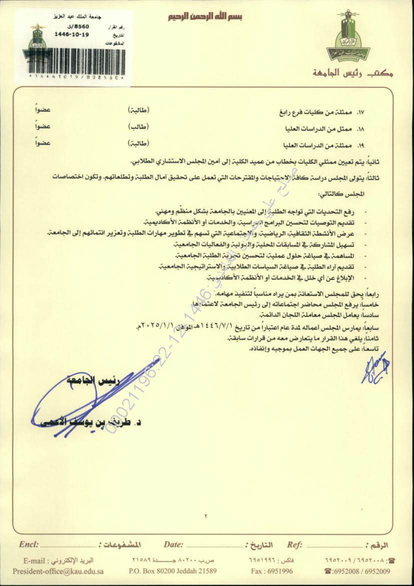 بسم الله الرحمن الرحيم
جامعة الملك عبد العزيز
رقم القرار 8560/ق
التاريخ 1446-10-19
المشفوعات :
مكتب رئيس الجامعة
١٧. ممثلة من كليات فرع رابغ (طالبة) عضواً
١٨. ممثل من الدراسات العليا (طالب) عضواً
١٩. ممثلة من الدراسات العليا (طالبة) عضواً
ثانياً: يتم تعيين ممثلي الكليات بخطاب من عميد الكلية إلى أمين المجلس الاستشاري الطلابي.
ثالثاً: يتولى المجلس دراسة كافة الاحتياجات والمقترحات التي تعمل على تحقيق آمال الطلبة وتطلعاتهم، وتكون اختصاصات
المجلس كالتالي:
- رفع التحديات التي تواجه الطلبة إلى المعنيين بالجامعة بشكل منظم ومهني.
- تقديم التوصيات لتحسين البرامج الدراسية والخدمات أو الأنظمة الأكاديمية.
- عرض الأنشطة الثقافية، الرياضية، والاجتماعية التي تسهم في تطوير مهارات الطلبة وتعزيز انتمائهم إلى الجامعة.
- تسهيل المشاركة في المسابقات المحلية والدولية والفعاليات الجامعية.
- المساهمة في صياغة حلول عملية لتحسين تجربة الطلبة الجامعية.
- تقديم آراء الطلبة في صياغة السياسات الطلابية والاستراتيجية الجامعية.
- الإبلاغ عن أي خلل في الخدمات أو الأنظمة الأكاديمية.
رابعاً: يحق للمجلس الاستعانة بمن يراه مناسباً لتنفيذ مهامه.
خامساً: يرفع المجلس محاضر اجتماعاته إلى رئيس الجامعة لاعتمادها.
سادساً: يعامل المجلس معاملة اللجان الدائمة.
سابعاً: يمارس المجلس أعماله لمدة عام اعتباراً من تاريخ ١٤٤٦/٧/١هـ الموافق ٢٠٢٥/١/١م.
ثامناً: يلغي هذا القرار ما يتعارض معه من قرارات سابقة
تاسعاً: على جميع الجهات العمل بموجبه وإنفاذه.
رئيس الجامعة
د. طريف بن يوسف الأعمى
٢
الرقم : Ref: التاريخ : Date: المشفوعات : Encl:
☎: ٦٩٥٢٠٠٨ / ٦٩٥٢٠٠٩ فاكس : ٦٩٥١٩٩٦ ص.ب ٨٠٢٠٠ جدة ٢١٥٨٩ البريد الإلكتروني : E-mail
☎: 6952008 / 6952009 Fax : 6951996 P.O. Box 80200 Jeddah 21589 President-office@kau.edu.sa